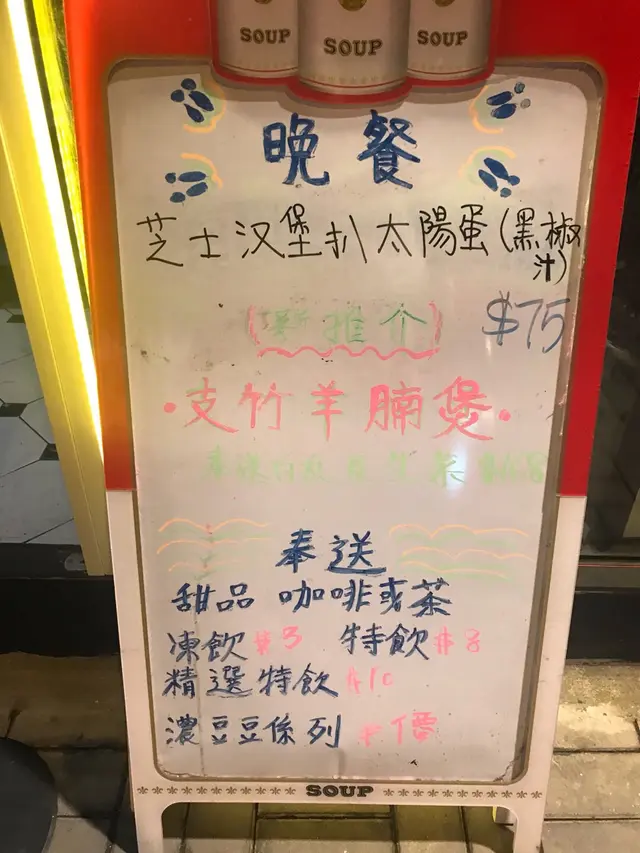 SOUP SOUP SOUP
晚餐
芝士汉堡扒太陽蛋(黑椒汁)
(新推介) $75
·支竹羊腩煲·
生菜
奉送
甜品 咖啡或茶
凍飲 $3 特飲 $8
精選特飲 $10
濃豆豆係列 半價
SOUP